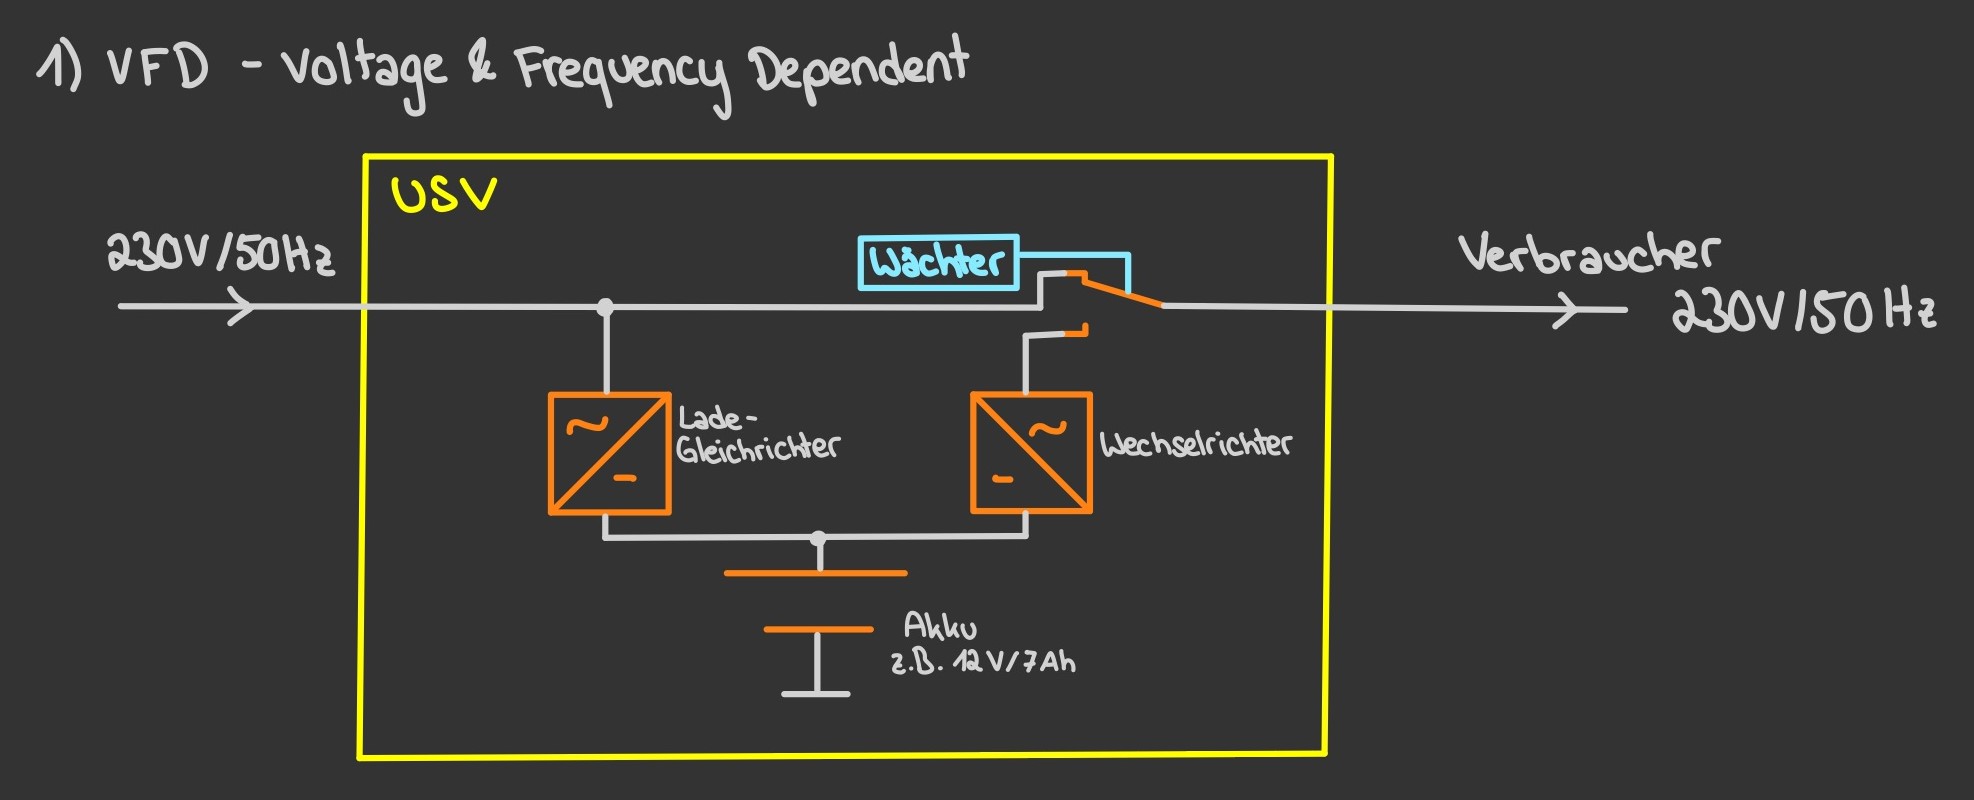 1) VFD - Voltage & Frequency Dependent
USV
230V/50Hz
Wächter
Verbraucher
230V/50Hz
Lade-
Gleichrichter
Wechselrichter
Akku
z.B. 12V/7Ah